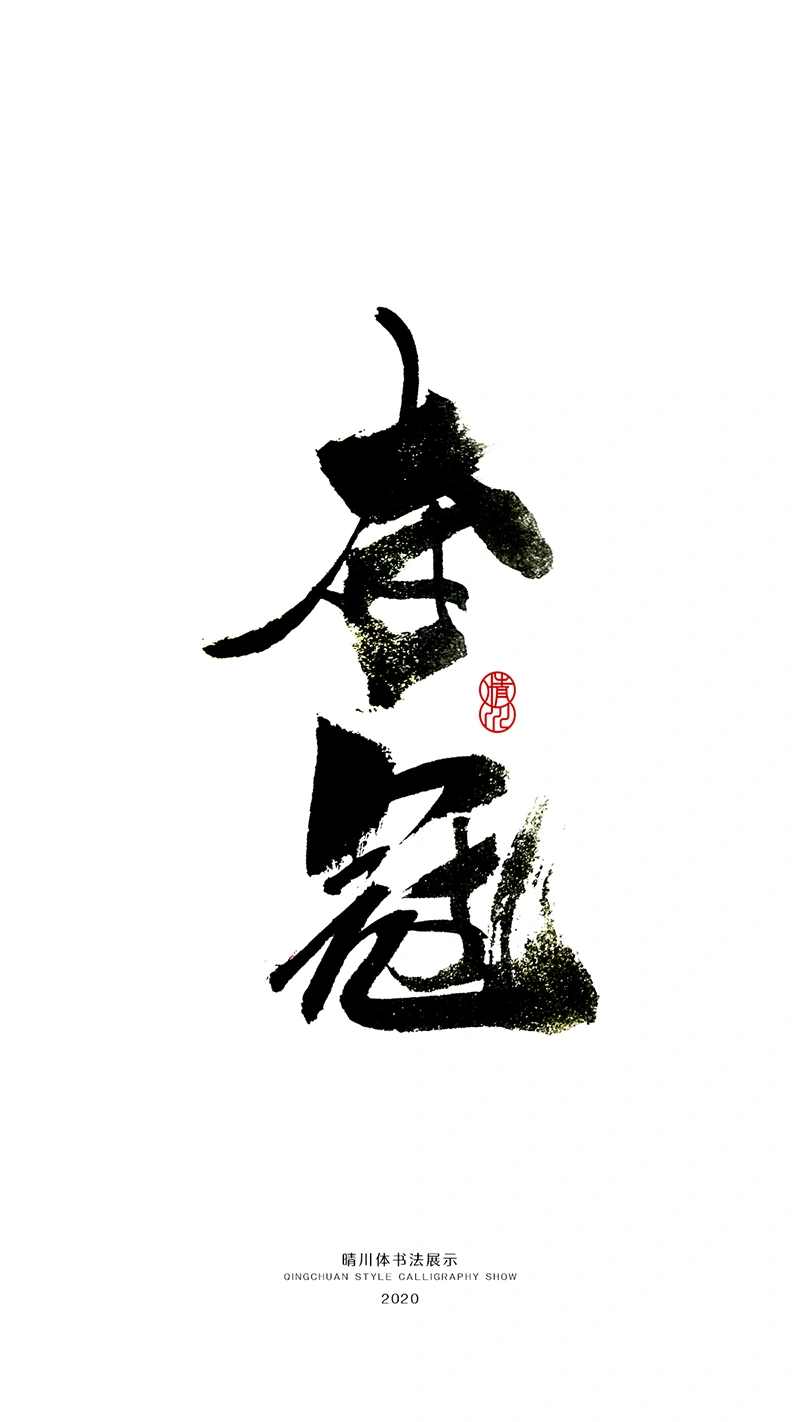 春冠
晴川
晴川体书法展示
QINGCHUAN STYLE CALLIGRAPHY SHOW
2020